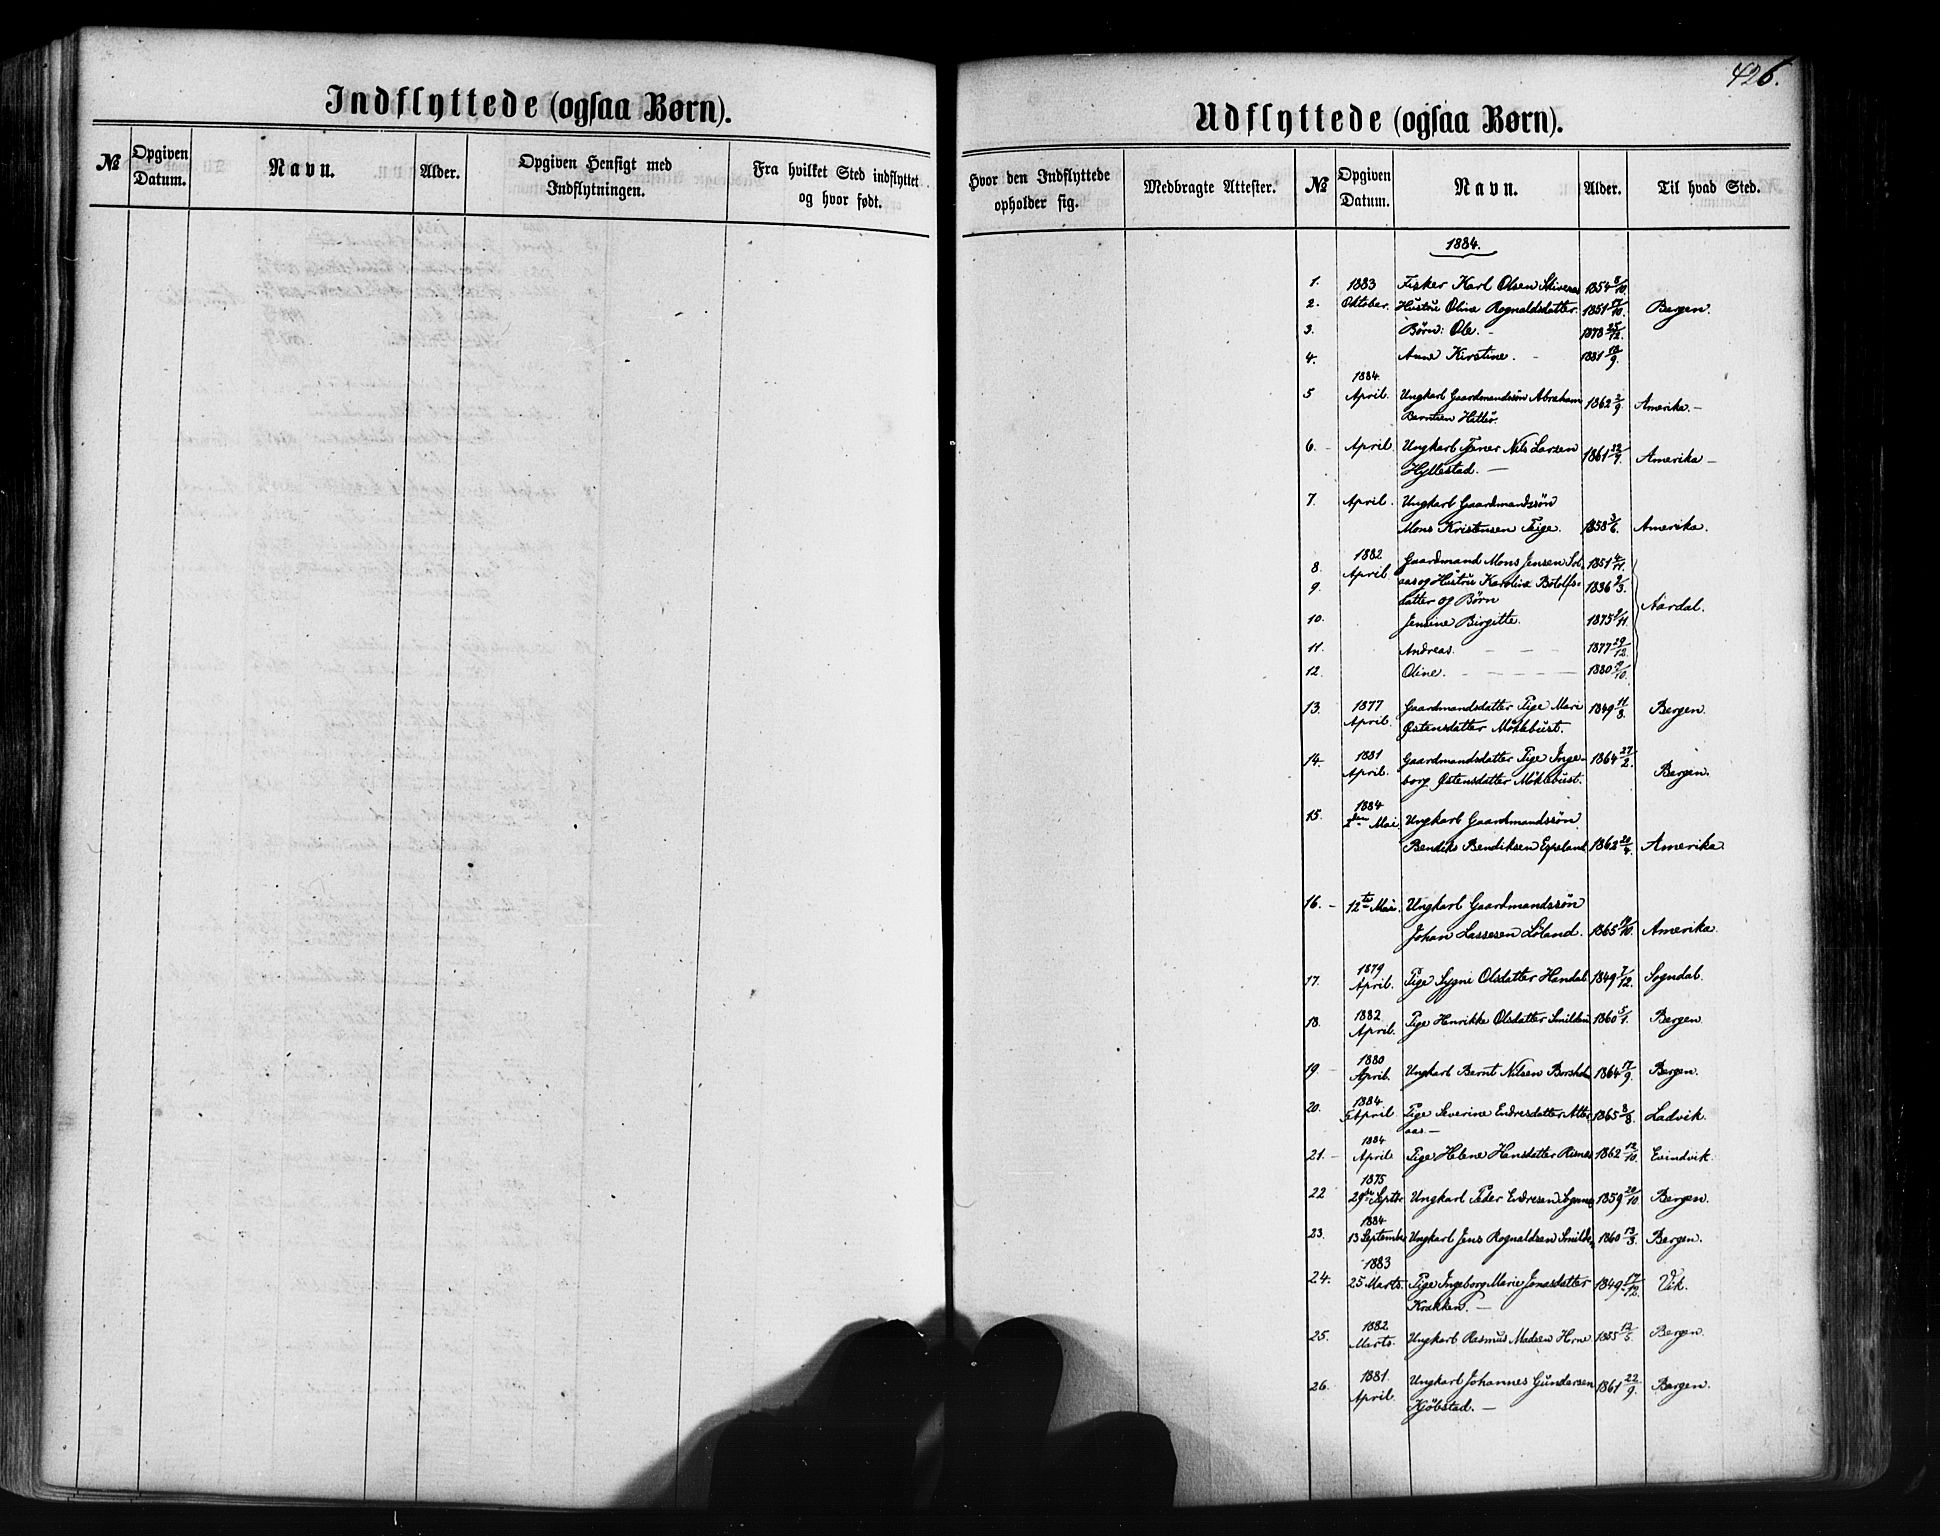 426.
Indflyttede (ogsaa Børn).
Udflyttede (ogsaa Børn).
№ Opgiven Datum. Navn. Alder. Opgiven Hensigt med Indflytningen. Fra hvilket Sted indflyttet og hvor født.
Hvor den Indflyttede opholder sig. Medbragte Attester. № Opgiven Datum. Navn. Alder. Til hvad Sted.
1884.
1. 1883 Fisker Karl Olsen 1854 8/10
2. Oktober. Hustru Oline Rognaldsdatter 1851 17/10. Bergen.
3. Børn: Ole. - 1878 25/12.
4. Anne Kirstine. - 1881 18/9.
1884.
5 April. Ungkarl Gaardmandssøn Abraham 1862 2/9. Amerika. -
Berntsen Hatlø.
6. - April. Ungkarl Tjener Nils Larsen 1861 22/9. Amerika -
Hyllestad. -
7. April. Ungkarl Gaardmandssøn
Mons Kristensen Teige. 1858 3/6. Amerika.
1882
8. April. Gaardmand Mons Jensen Sol 1851 4/11.
9. aas og Hustru Karolina Botolfs- 1836 2/3.
datter og Børn Aardal.
10. Jensine Birgitte. 1875 2/11.
11. Andreas. - - - 1877 29/12.
12. Oline. - - - - 1880 9/10.
13. 1877 Gaardmandsdatter Pige Mari 1849 11/8. Bergen.
April. Østensdatter Møklebust.
14. 1881 Gaardmandsdatter Pige Inge- 1864 27/2.
April. borg Østensdatter Møklebust. Bergen.
1884
15. 2den Mai Ungkarl Gaardmandssøn
Bendiks Bendiksen Espeland 1862 20/4. Amerika.
16. - 12te Mai. Ungkarl Gaardmandssøn
Johan Lassesen Løland. 1865 19/10. Amerika.
1879
17. April. Pige Sygni Olsdatter Handal 1849 7/12. Sogndal.
1882
18. April. Pige Henrikke Olsdatter Smilden 1860 5/1. Bergen.
1880
19. April. Ungkarl Bernt Nilsen 1864 17/9. Bergen.
1884.
20. 5 April Pige Severine Endresdatter Atter 1865 3/8. Ladvik.
aas -
1884
21. - April Pige Helene Hansdatter Risnes 1862 12/10. Evindvik.
1875
22 29de Septbr Ungkarl Peder Endresen 1859 20/10 Bergen.
1884
23. 13 September Ungkarl Jens Rognaldsen Smilden 1860 13/3. Bergen.
1883
24. 25 Marts. Pige Ingeborg Marie Jonasdatter 1849 17/12. Vik.
Krakken. -
1882
25. Marts. Ungkarl Rasmus Madsen Horne 12/5. Bergen.
1881.
26. April. Ungkarl Johannes Gundersen 1861 22/9. Bergen.
Kjøbstad. -